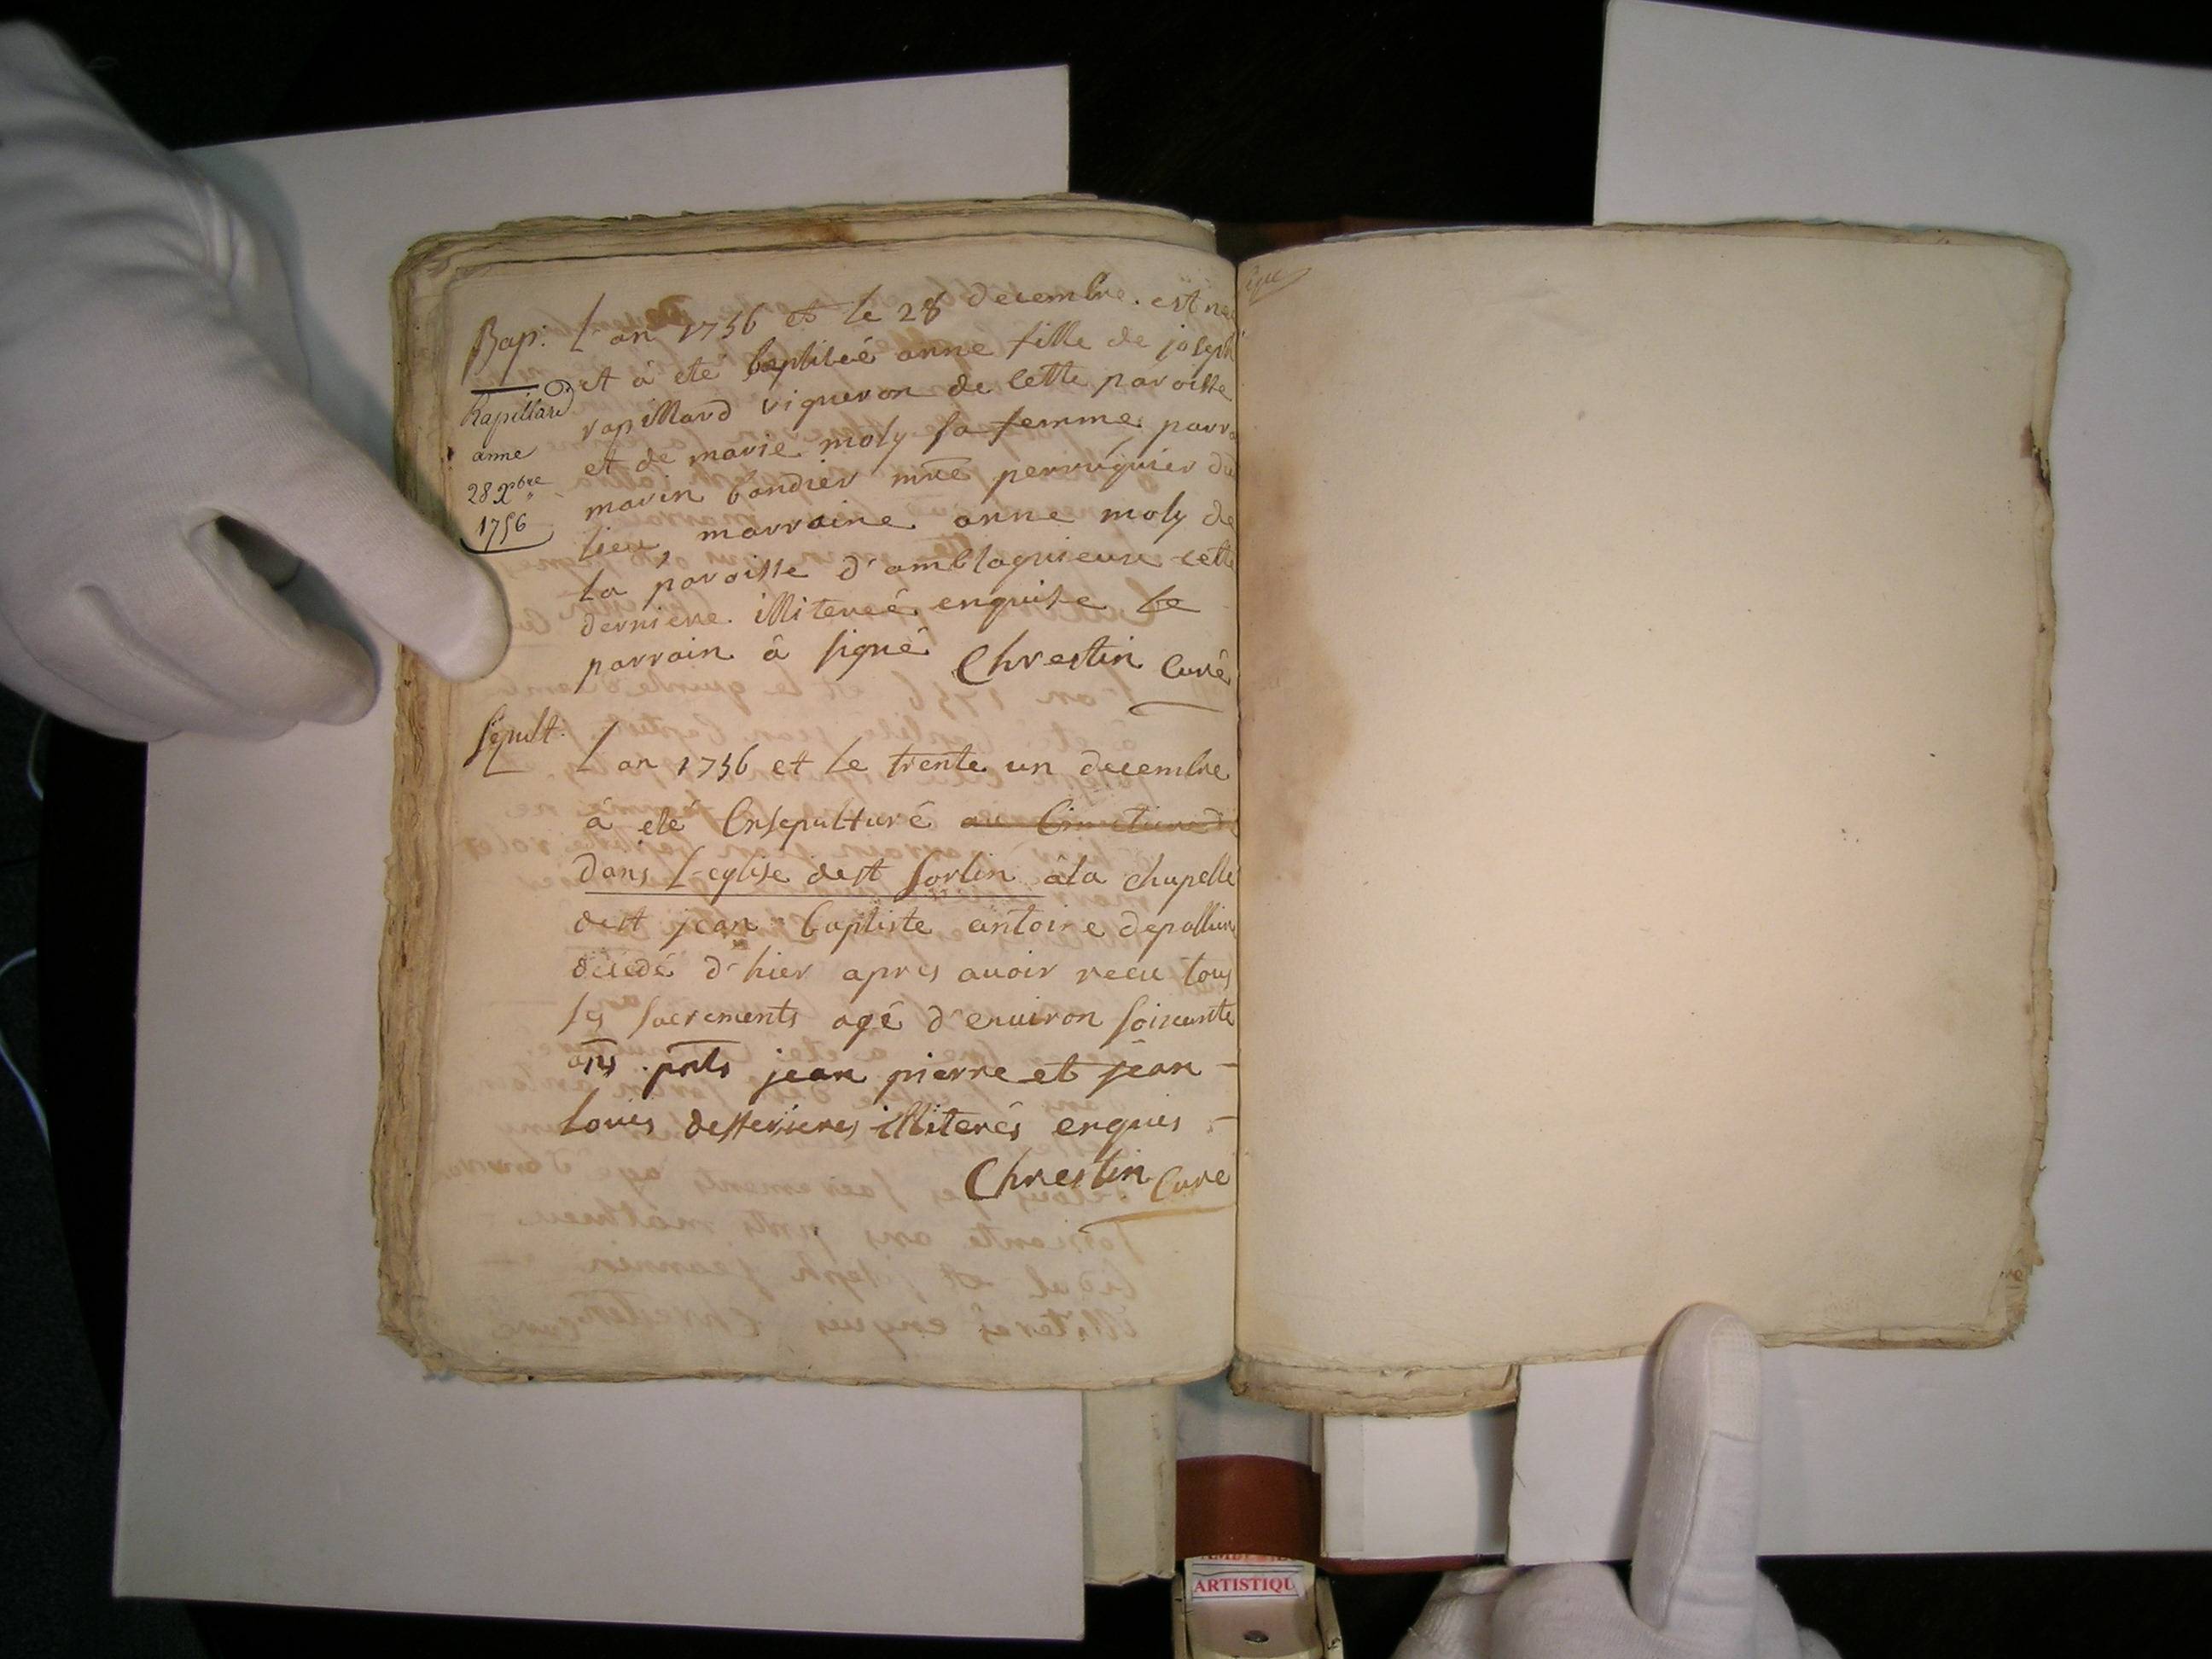 Bap: L'an 1756 et le 28 decembre. est née
et à eté baptiseé anne fille de joseph
rapillard vigneron de cette paroisse
et de marie moly sa femme parra
marin bondier mtre perruquier du
lieu, marraine anne moly de
la paroisse d'amblagnieux cette
derniere illitereé enquise le
parrain à signé Chrestin Curé
Rapillard
anne
28 Xbre
1756
Sepult. L'an 1756 et le trente un decembre
à eté Ensepulturé au Cimetiere de
dans L'eglise de st Sorlin à la chapelle
de st jean baptiste antoine depallier
decedé d'hier apres auoir recu tous
ses sacrements agé d'enuiron soixante
ans pnts jean pierre et jean –
Louis desserieres illiterés enquis –
Chrestin Curé
ARTISTIQU